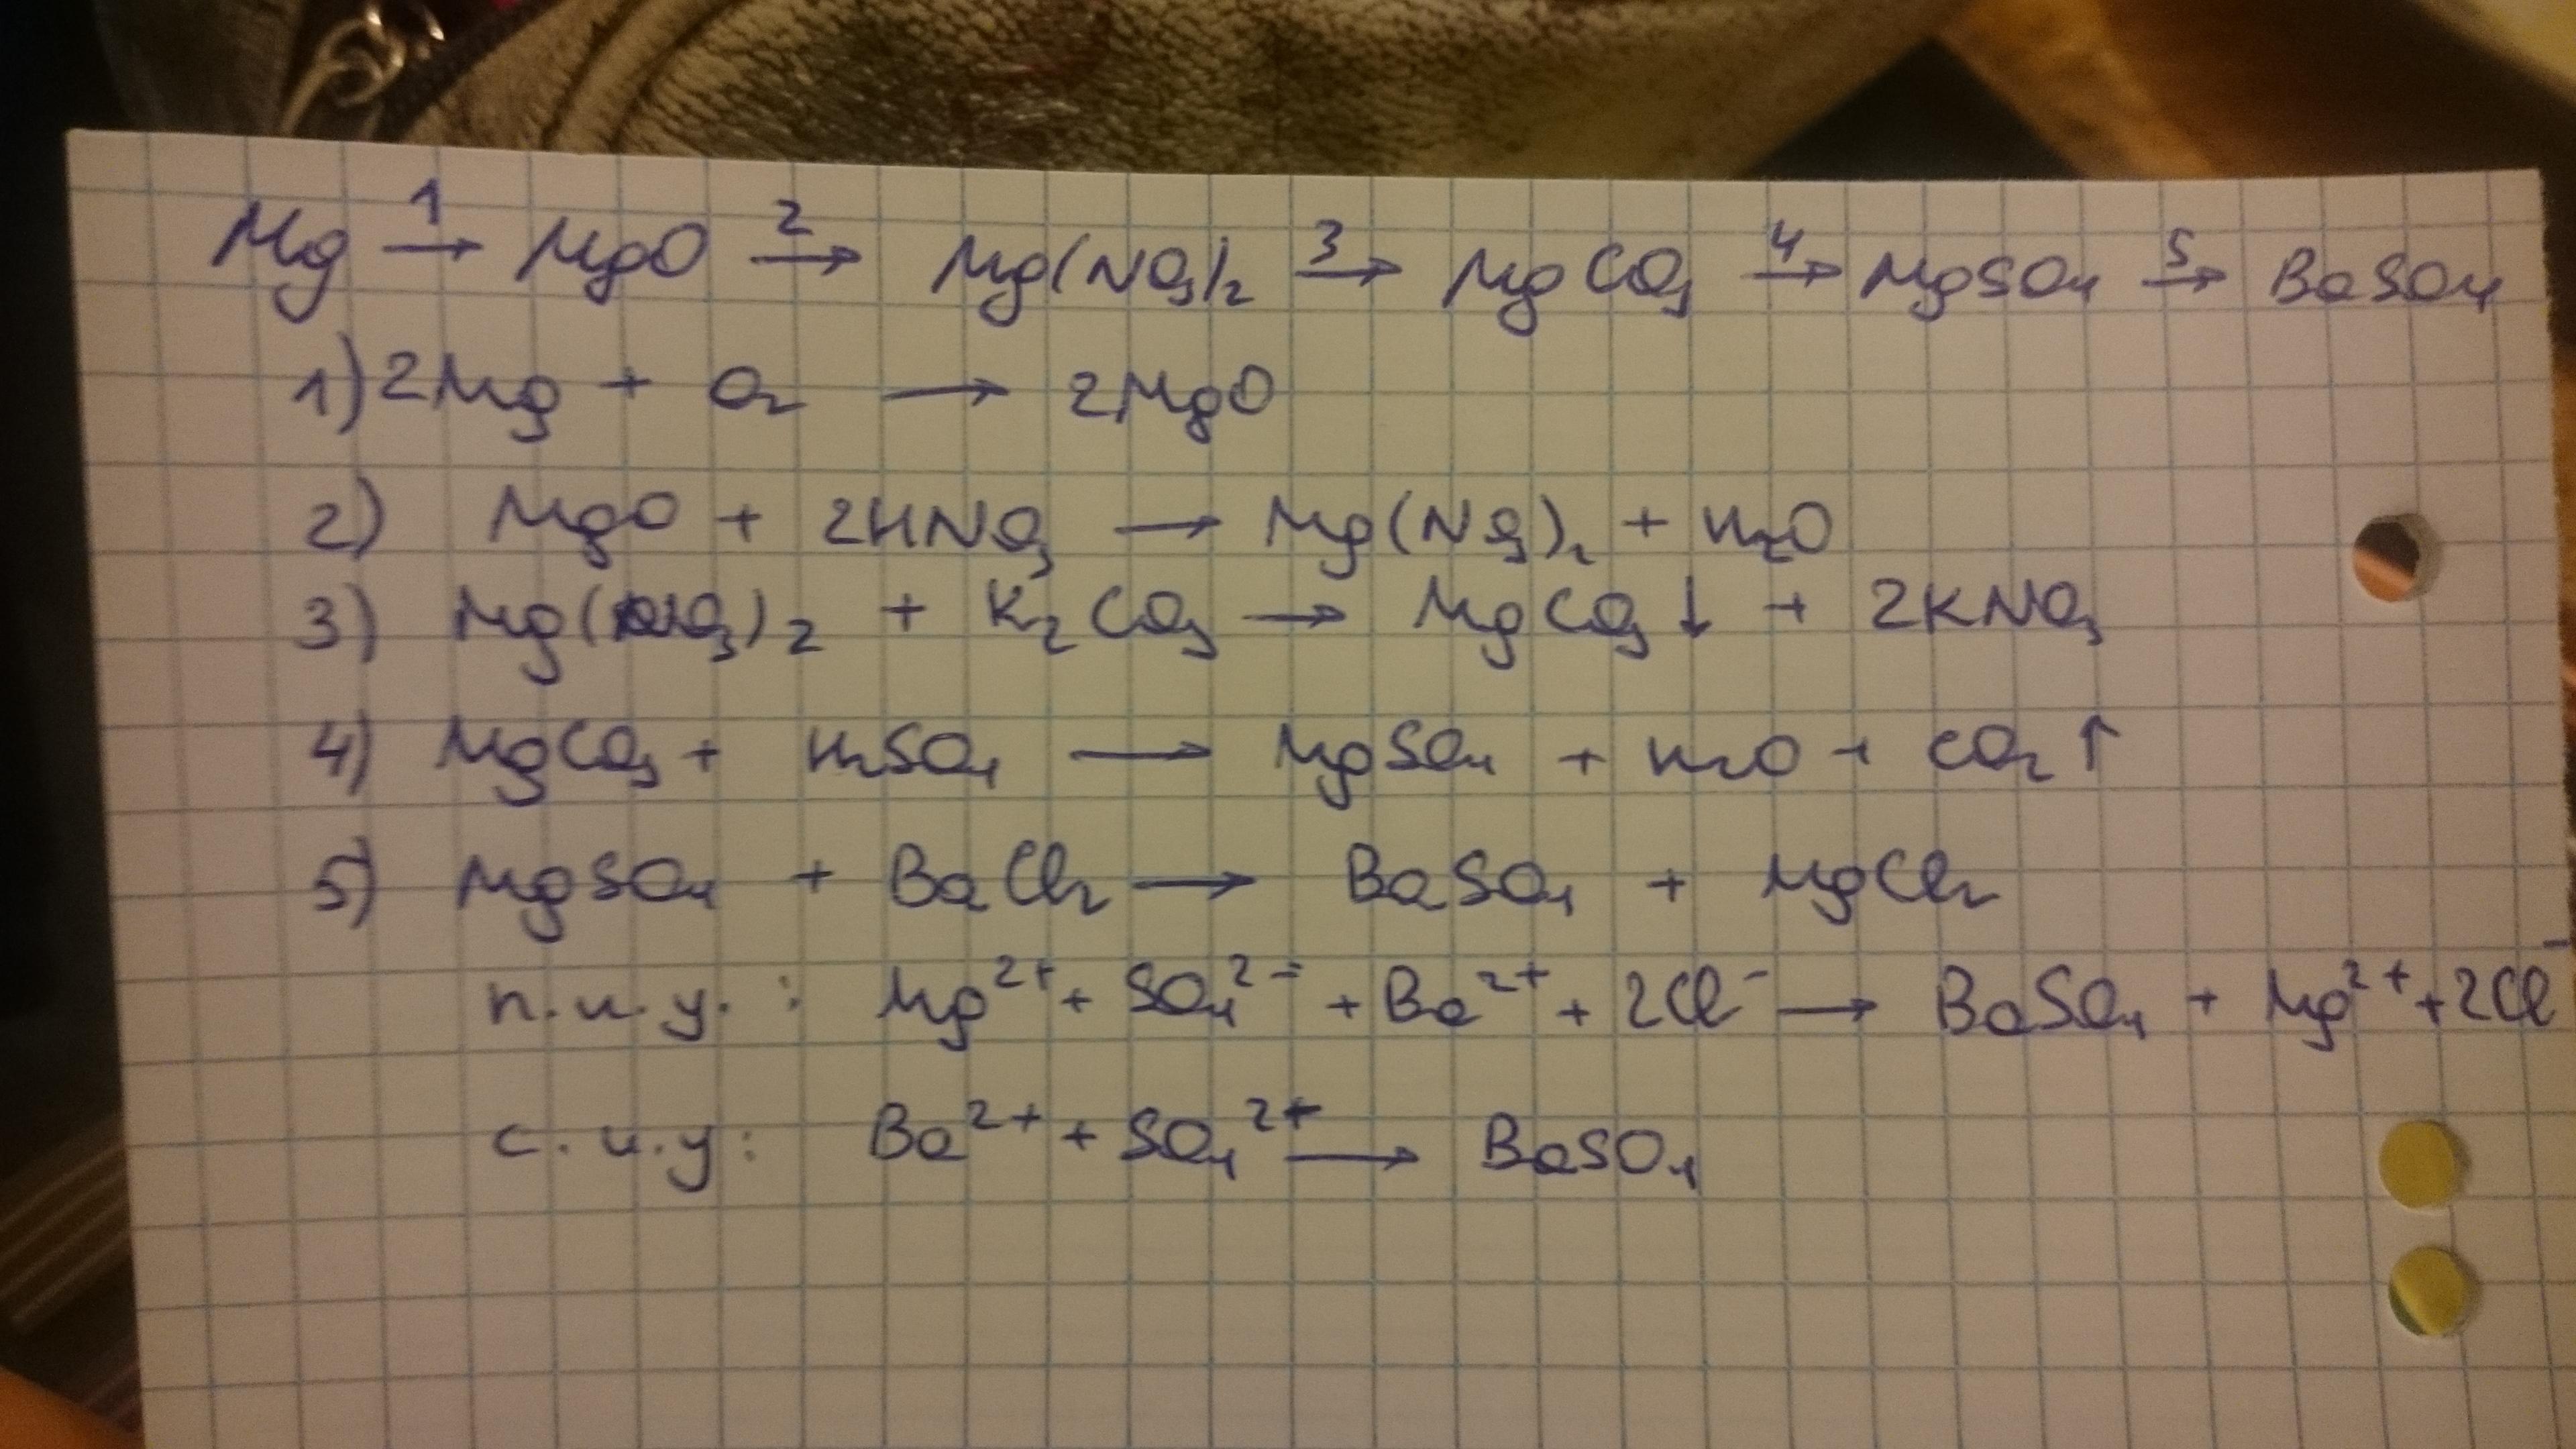 Mg 1→ MgO 2→ Mg(NO₃)₂ 3→ MgCO₃ 4→ MgSO₄ 5→ BaSO₄
1) 2Mg + O₂ → 2MgO
2) MgO + 2HNO₃ → Mg(NO₃)₂ + H₂O
3) Mg(NO₃)₂ + K₂CO₃ → MgCO₃↓ + 2KNO₃
4) MgCO₃ + H₂SO₄ → MgSO₄ + H₂O + CO₂↑
5) MgSO₄ + BaCl₂ → BaSO₄ + MgCl₂
п.и.у.: Mg²⁺ + SO₄²⁻ + Ba²⁺ + 2Cl⁻ → BaSO₄ + Mg²⁺ + 2Cl⁻
с.и.у: Ba²⁺ + SO₄²⁺ → BaSO₄